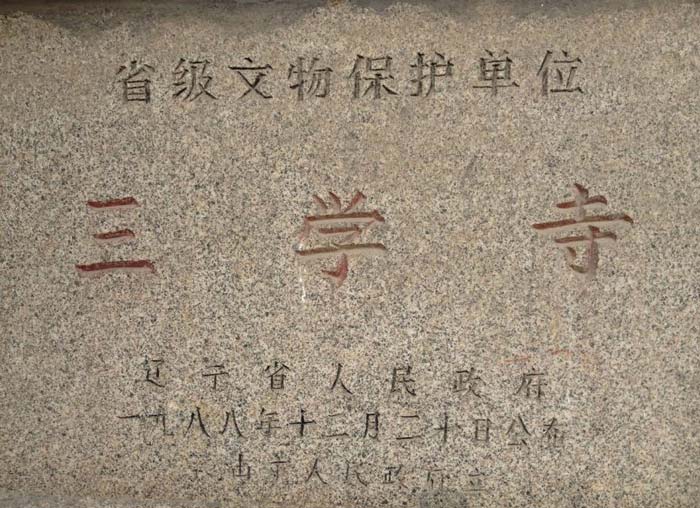 省级文物保护单位
三学寺
辽宁省人民政府
一九八八年十二月二十日公布
山市人民政府立